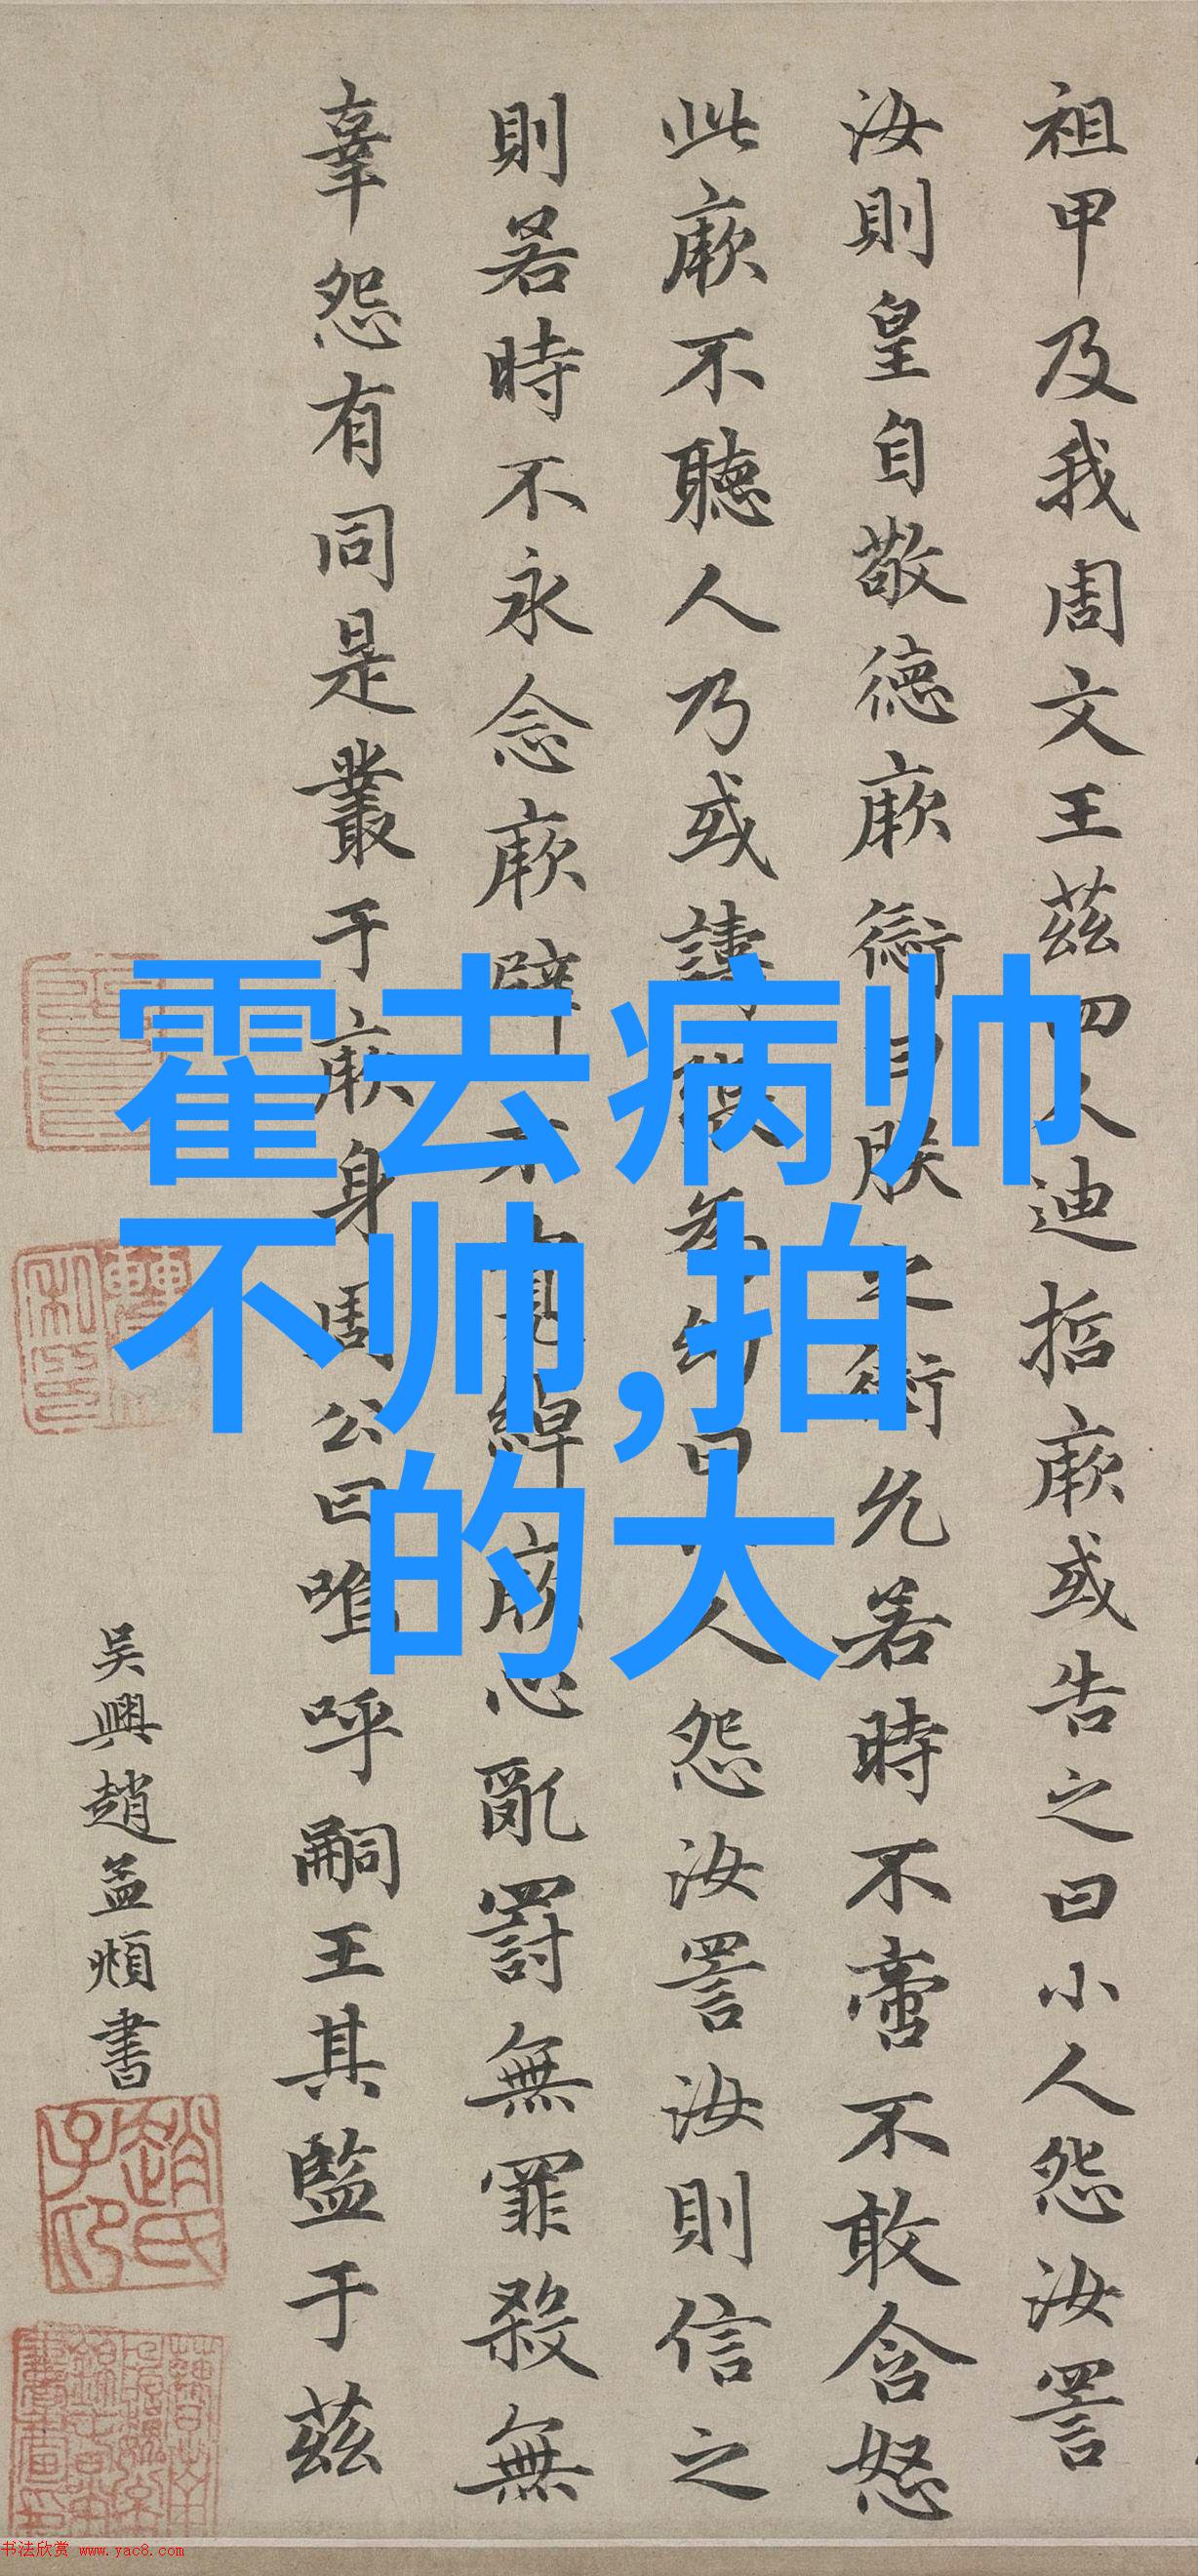 祖甲及我周文王茲四人迪哲厥或告之曰小人怨汝詈
汝則皇自敬德厥愆曰朕之愆允若時不啻不敢含怒
此厥不聽人乃或譸張為幻曰小人怨汝詈汝則信之
則若時不永念厥辟不寬綽厥心亂罰無罪殺無
辜怨有同是叢于厥身周公曰嗚呼嗣王其監于茲
吳興趙孟頫書
趙氏子印
霍去病帅
不帅,拍
的大
书法欣赏 www.yac8.com